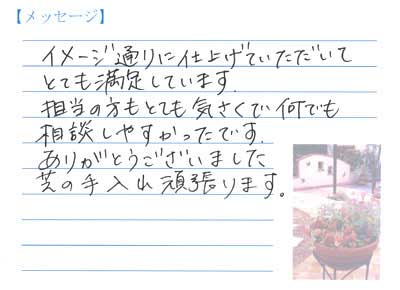 【メッセージ】
イメージ通りに仕上げていただいて
とても満足しています.
担当の方もとても気さくで何でも
相談しやすかったです.
ありがとうございました
芝の手入れ頑張ります。